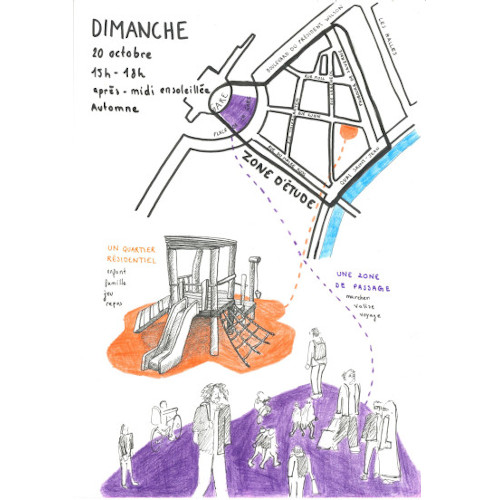 DIMANCHE
20 octobre
15h - 18h
après - midi ensoleillée
Automne
BOULEVARD DU PRÉSIDENT WILSON
LES HALLES
GARE
PLACE
QUAI SAINT JEAN
ZONE D'ÉTUDE
UN QUARTIER
RÉSIDENTIEL
enfant
famille
jeu
repos
UNE ZONE
DE PASSAGE
marcher
valise
voyage